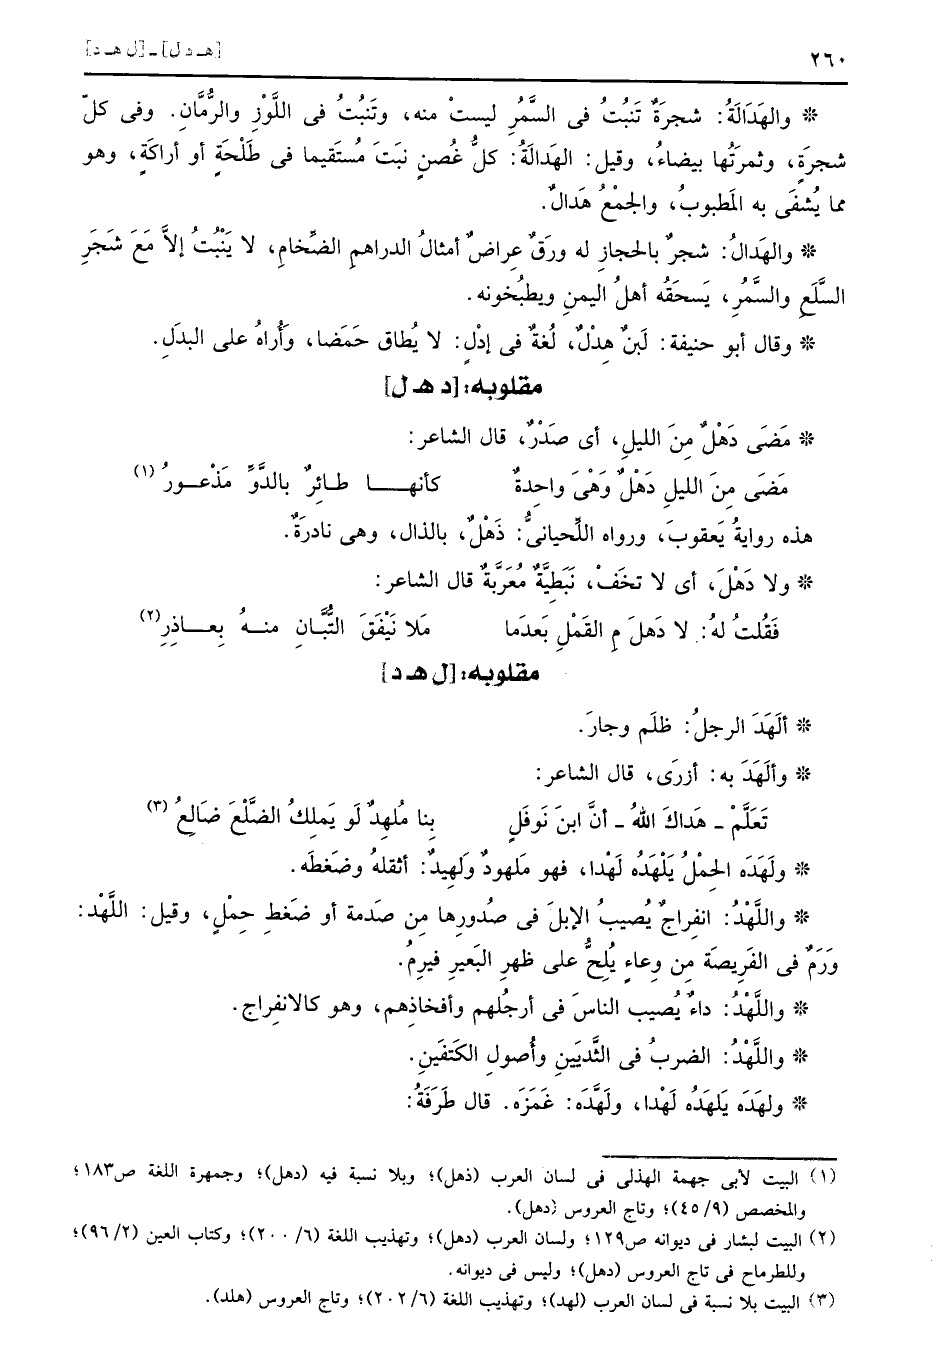 ٢٦٠
[هـ د ل] ـ [ل هـ د]
* والهَدَالَةُ: شجرَةٌ تَنبُتُ فى السَّمُرِ ليستْ منه، وتَنبُتُ فى اللَّوْزِ والرُّمَّانِ. وفى كلّ
شجرَةٍ، وثمرتُها بيضاءُ، وقيل: الهَدالَةُ: كلُّ غُصنٍ نبَتَ مُستَقيما فى طَلْحَةٍ أو أراكَةٍ، وهو
مما يُشفَى به المَطبوبُ، والجمْعُ هَدالٌ.
* والهَدالُ: شجرٌ بالحجازِ له ورَقٌ عِراضٌ أمثالُ الدراهمِ الضِّخامِ، لا يَنْبُتُ إلاَّ مَعَ شَجَرِ
السَّلَعِ والسَّمُرِ، يَسحَقُه أهلُ اليمنِ ويطبُخونه.
* وقال أبو حنيفة: لَبنٌ هِدْلٌ، لُغةٌ فى إدْلٍ: لا يُطاق حَمَضا، وأُراهُ على البدَلِ.
مقلوبه: [د هـ ل]
* مَضَى دَهْلٌ مِنَ الليلِ، أى صَدْرٌ، قال الشاعر:
مَضَى مِنَ الليلِ دَهْلٌ وَهْىَ واحِدةٌ كأنهـــا طـائرٌ بالدَّوِّ مَذْعـورُ (١)
هذه روايةُ يَعقوبَ، ورواه اللَّحيانىُّ: ذَهْلٌ، بالذال، وهى نادرَةٌ.
* ولا دَهْلَ، أى لا تخَفْ، نَبَطِيَّةٌ مُعَرَّبَةٌ قال الشاعر:
فَقُلتُ لهُ: لا دَهلَ مِ القَملِ بَعدَما مَلا نَيْفَقَ التُّبَّـانِ منـهُ بِعـاذِرِ(٢)
مقلوبه: [ل هـ د]
* ألَهَدَ الرجلُ: ظلَم وجارَ.
* وألَهَدَ به: أزرَى، قال الشاعر:
تَعَلَّمْ ـ هَداكَ اللهُ ـ أنَّ ابنَ نَوفَلٍ بِنا مُلهِدٌ لو يَملِكُ الضَّلْعَ ضَالِعُ (٣)
* ولَهَدَه الحِمْلُ يَلْهَدُه لَهْدا، فهو مَلهودٌ ولَهيدٌ: أثقلهُ وضَغطَه.
* واللَّهْدُ: انفراجٌ يُصيبُ الإبلَ فى صُدورِها مِن صَدمة أو ضَغطِ حِمْلٍ، وقيل: اللَّهْد:
ورَمٌ فى الفَريصَة مِن وِعاءٍ يُلِحُّ على ظهرِ البَعيرِ فيَرِمُ.
* واللَّهْدُ: داءٌ يُصيب الناسَ فى أرجُلهم وأفخاذِهم، وهو كالانفراجِ.
* واللَّهْدُ: الضربُ فى الثَّديَينِ وأُصولِ الكَتفَينِ.
* ولهَدَه يَلهَدُه لَهْدا، ولهَّدَه: غَمَزَه. قال طَرَفَةُ:
(١) البيت لأبى جهمة الهذلى فى لسان العرب (ذهل)؛ وبلا نسبة فيه (دهل)؛ وجمهرة اللغة ص٦٨٣؛
والمخصص (٩/ ٤٥)؛ وتاج العروس (دهل).
(٢) البيت لبشار فى ديوانه ص١٢٩؛ ولسان العرب (دهل)؛ وتهذيب اللغة (٦/ ٢٠٠)؛ وكتاب العين (٢/ ٩٦)؛
وللطرماح فى تاج العروس (دهل)؛ وليس فى ديوانه.
(٣) البيت بلا نسبة فى لسان العرب (لهد)؛ وتهذيب اللغة (٦/ ٢٠٢)؛ وتاج العروس (هلد).